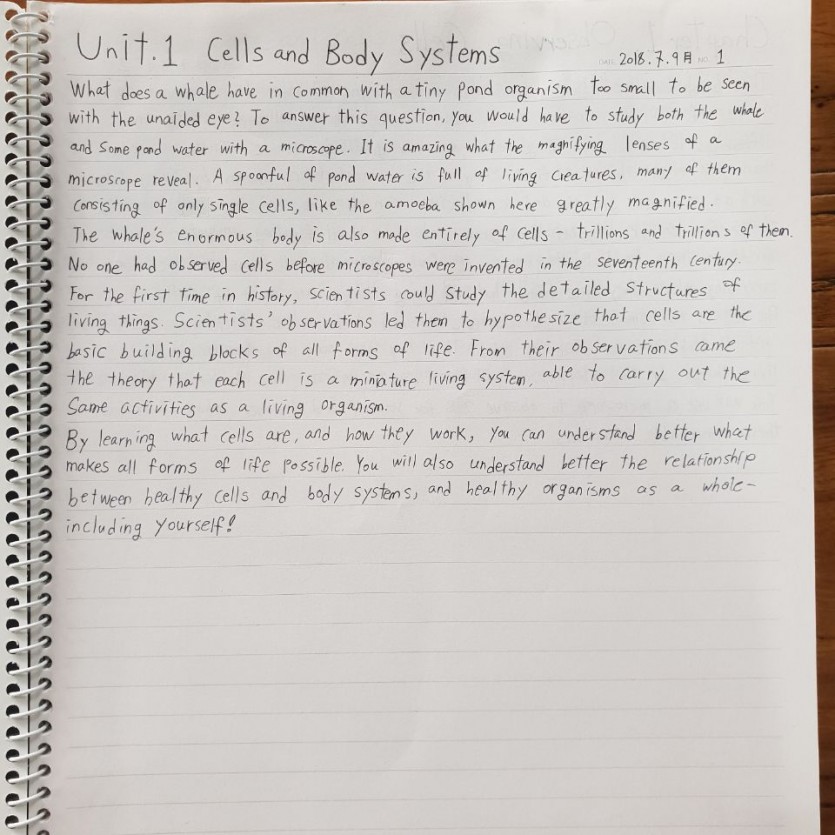 Unit.1 Cells and Body Systems
2018.7.9月 NO. 1
What does a whale have in common with a tiny pond organism too small to be seen
with the unaided eye? To answer this question, you would have to study both the whale
and some pond water with a microscope. It is amazing what the magnifying lenses of a
microscope reveal. A spoonful of pond water is full of living creatures, many of them
consisting of only single cells, like the amoeba shown here greatly magnified.
The whale's enormous body is also made entirely of cells - trillions and trillions of them.
No one had observed cells before microscopes were invented in the seventeenth century.
For the first time in history, scientists could study the detailed structures of
living things. Scientists' observations led them to hypothesize that cells are the
basic building blocks of all forms of life. From their observations came
the theory that each cell is a miniature living system, able to carry out the
same activities as a living organism.
By learning what cells are, and how they work, you can understand better what
makes all forms of life possible. You will also understand better the relationship
between healthy cells and body systems, and healthy organisms as a whole-
including yourself!